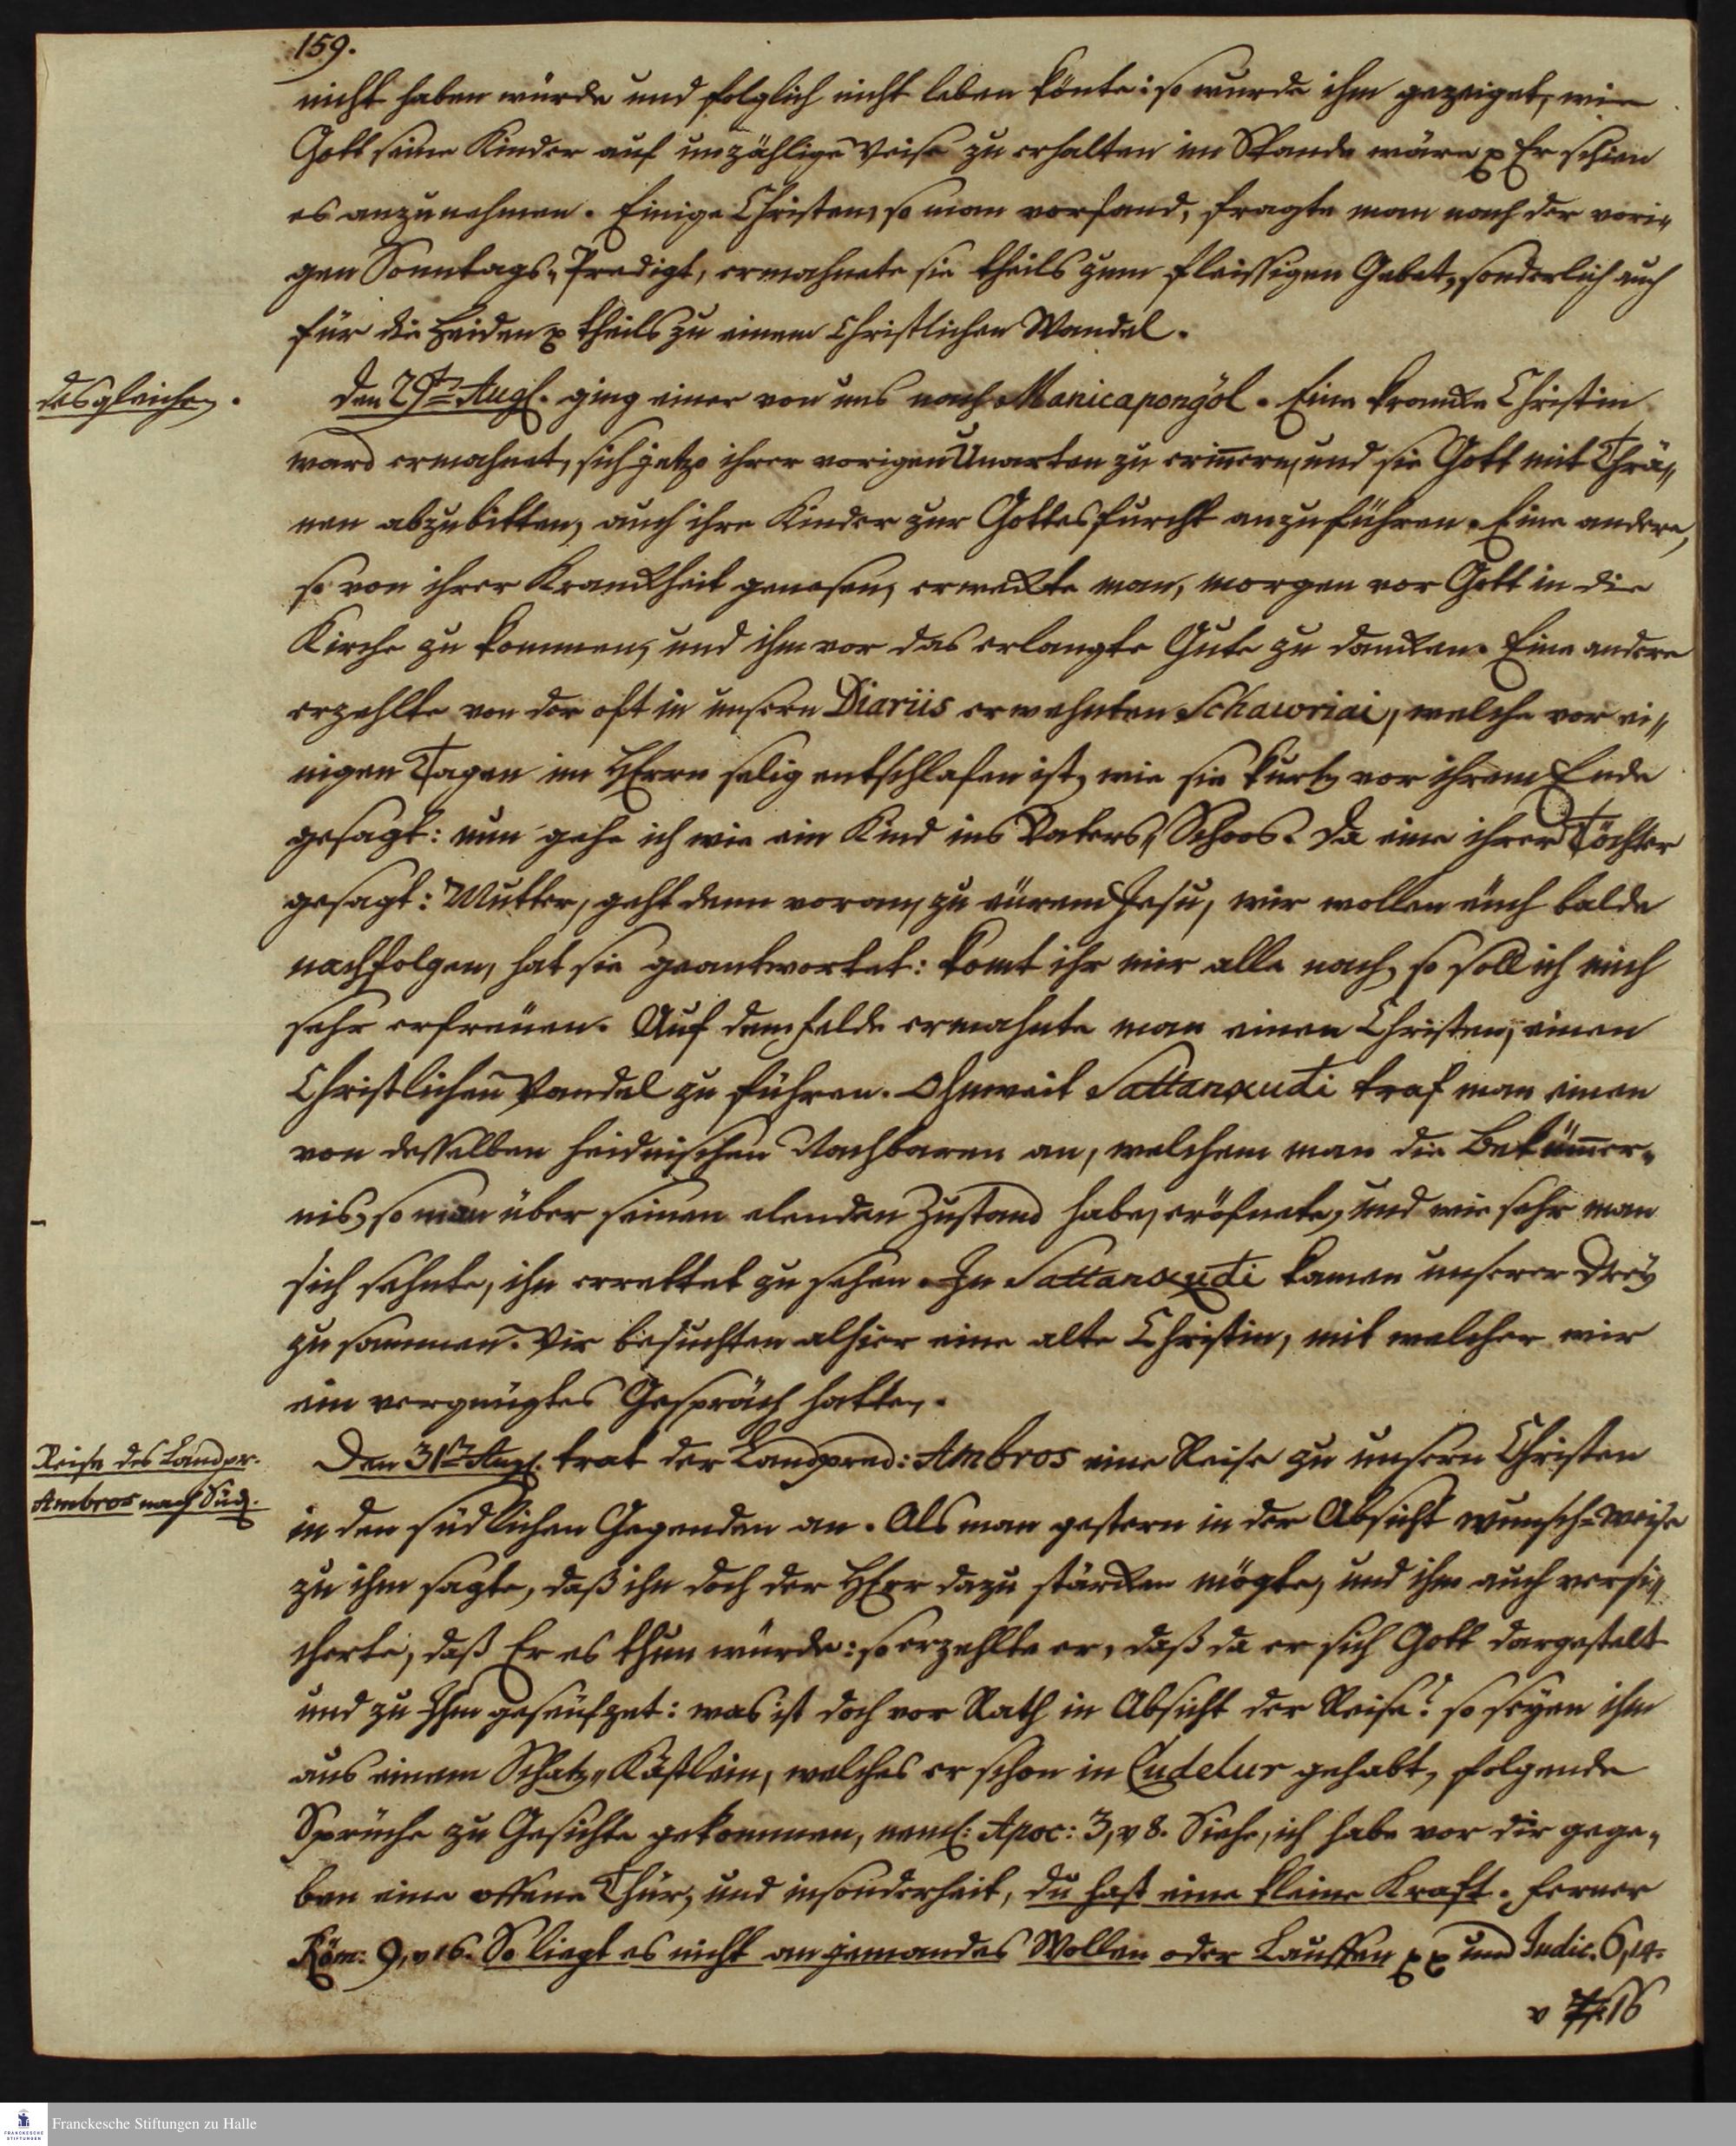 159.
nicht haben würde und folglich nicht leben könte: so wurde ihm gezeiget, wie
Gott seine Kinder auf unzählige Weise zu erhalten im Stande wäre p Er schien
es anzunehmen. Einige Christen, so man vorfand, fragte man nach der vori„
gen Sonntags„Predigt, ermahnete sie theils zum fleissigen Gebet, sonderlich auch
für die Heiden p theils zu einem Christlichen Wandel.
desgleichen.
Den 29ten Aug. ging einer von uns nach Manicapongöl. Eine krancke Christin
ward ermahnet, sich jetzo ihrer vorigen Unarten zu erinnern, und sie Gott mit Thrä„
nen abzubitten, auch ihre Kinder zur Gottesfurcht anzuführen. Eine andere,
so von ihrer Kranckheit genesen, erweckte man, morgen vor Gott in die
Kirche zu kommen, und ihm vor das erlangte Gute zu dancken. Eine andere
erzehlte von der oft in unsern Diariis erwehnten Schawriai, welche vor ei„
nigen Tagen im HErrn selig entschlafen ist, wie sie kurtz vor ihrem Ende
gesagt: nun gehe ich wie ein Kind ins Vaters„Schoos. Da eine ihrer Töchter
gesagt: Mutter, geht denn voran, zu eürem Jesu, wir wollen eüch balde
nachfolgen, hat sie geantwortet: komt ihr mir alle nach, so soll ich mich
sehr erfreüen. Auf dem felde ermahnte man einen Christen, einen
Christlichen Wandel zu führen. Ohnweit Sattanxudi traf man einen
von desselben heidnischen Nachbaren an, welchem man die Bekümmer„
nis, so man über seinen elenden Zustand habe, eröfnete, und wie sehr man
sich sehnte, ihn errettet zu sehen. In Sattanxudi kamen unserer drey
zusammen. Wir besuchten alhier eine alte Christin, mit welcher wir
ein vergnügtes Gespräch hatten.
Reise des Landpr.
Ambros nach Süd.
Den 31ten Aug. trat der Landpred: Ambros eine Reise zu unsern Christen
in den südlichen Gegenden an. Als man gestern in der Absicht wunsch=weise
zu ihm sagte, daß ihn doch der HErr dazu stärcken mögte, und ihm auch versi„
cherte, daß Er es thun würde: so erzehlte er, daß da er sich Gott dargestelt
und zu Ihm geseüfzet: was ist doch vor Rath in Absicht der Reise? so seyen ihm
aus einem Schatz„Kästlein, welches er schon in Cudelur gehabt, folgende
Sprüche zu Gesichte gekommen, neml: Apoc: 3, v 8. Siehe, ich habe vor dir gege„
ben eine offene Thür, und insonderheit, du hast eine kleine Kraft. ferner
Röm: 9, v 16. So liegt es nicht an jemandes Wollen oder Lauffen p p und Judic. 6, 14.
v 16
Franckesche Stiftungen zu Halle